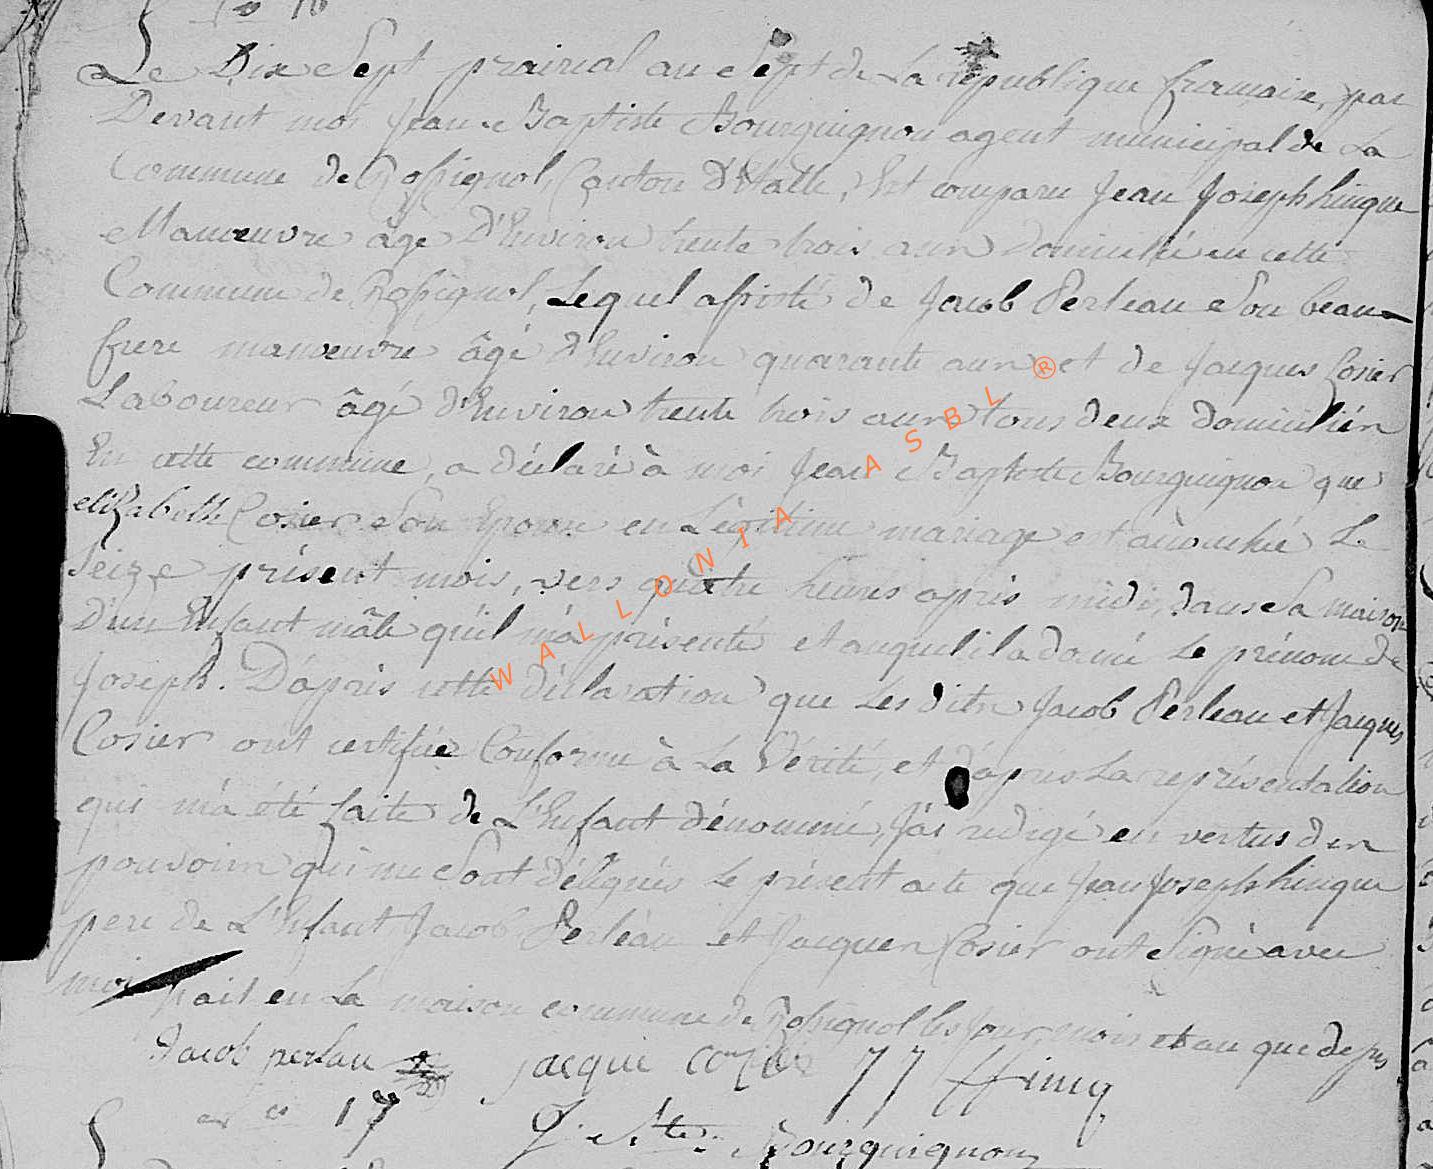 N° 16
Le Dix Sept prairial an Sept de La république francaise, par
Devant moi Jean Baptiste Bourguignon agent municipal de La
Commune de Rossignol, Canton D'Etalle, Est comparu Jean Joseph hinque
Manœuvre âgé D'Environ trente trois ans Domicilié en cette
Commune de Rossignol, Lequel assisté de Jacob Perleau Son beau-
frere manœuvre âgé D'Environ quarante ans et de Jacques Cosier
Laboureur âgé D'Environ trente trois ans tous deux domiciliés
En cette commune, a déclaré à moi Jean Baptiste Bourguignon que
elizabethe Cosier Son Epouse en Légitime mariage est accouchée Le
Seize présent mois, vers quatre heures apris midi, dans Sa maison
D'un Enfant mâle qu'il m'a présenté et auquel il a donné Le prénom de
Joseph. D'apris cette déclaration que Les dits Jacob Perleau et Jacques
Cosier ont certifiée Conforme à La Vérité, et d'apris La représentation
qui m'a été faite de L'Enfant dénommé, J'ai redigé en vertus des
pouvoirs qui me Sont délégués Le présent acte que Jean Joseph hinque
pere de L'Enfant Jacob Perléau et Jacques Cosier ont Signé avec
moi fait en La maison commune de Rossignol Les Jour, mois et an que dessus
Jacob perlau jacque cozie JJ hinq
17
J. Bte. Bourguignon
WALLONIA ASBL ®